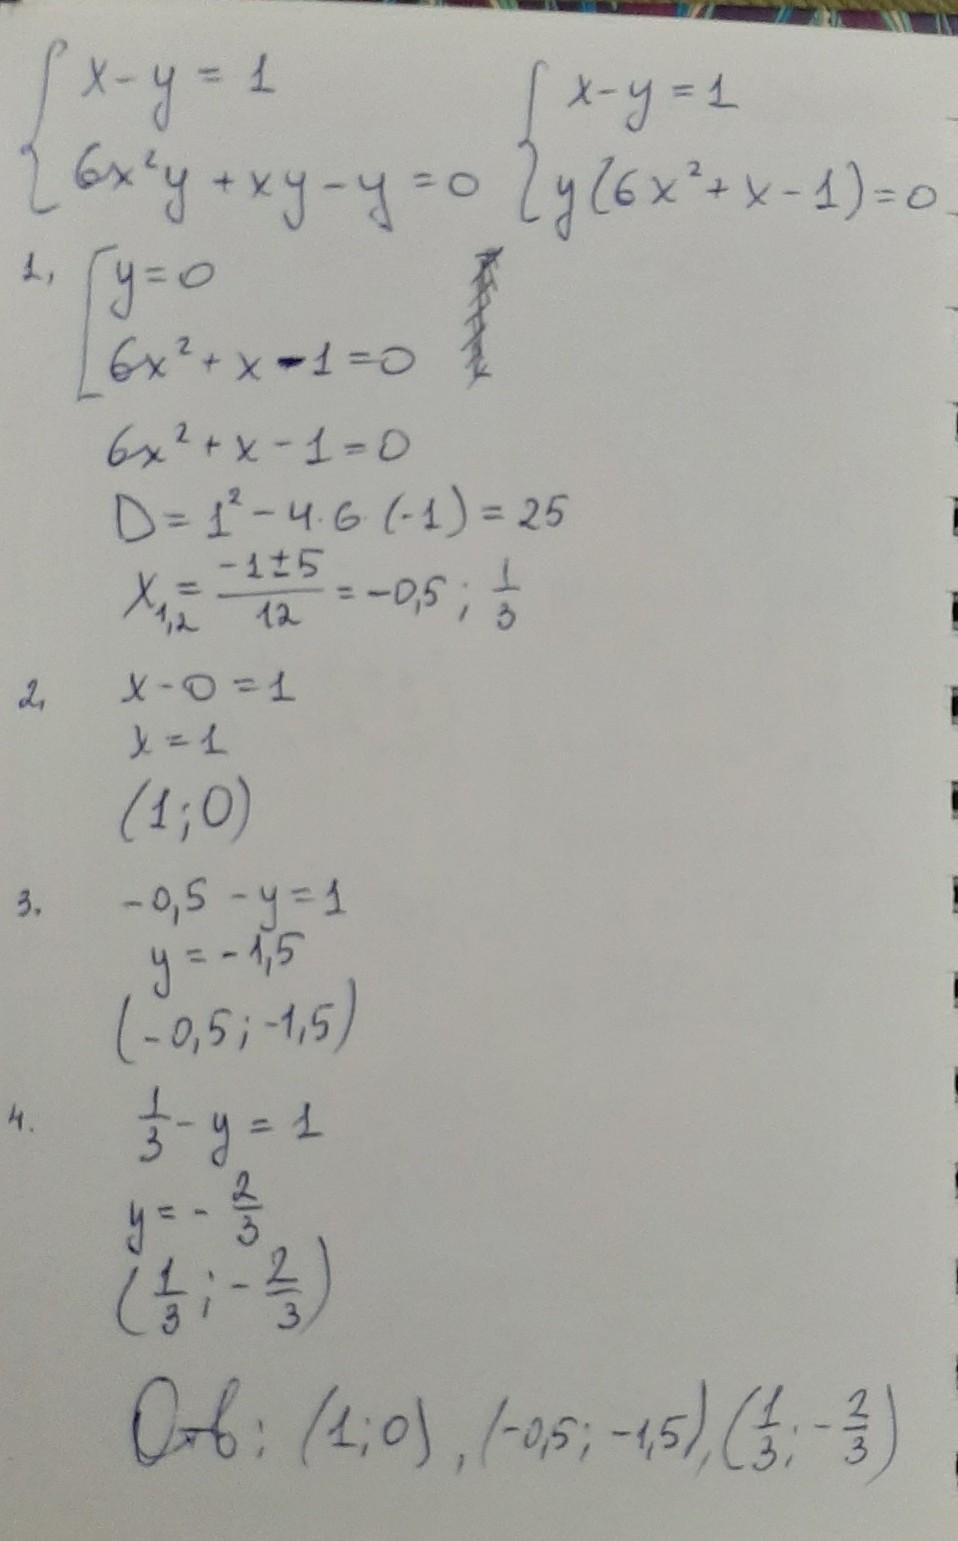 x - y = 1
6x²y + xy - y = 0
x - y = 1
y(6x² + x - 1) = 0
1, y = 0
6x² + x - 1 = 0
6x² + x - 1 = 0
D = 1² - 4·6·(-1) = 25
x₁,₂ = (-1±5)/12 = -0,5; 1/3
2, x - 0 = 1
x = 1
(1;0)
3. -0,5 - y = 1
y = -1,5
(-0,5; -1,5)
4. 1/3 - y = 1
y = - 2/3
(1/3; - 2/3)
Отв: (1;0), (-0,5; -1,5), (1/3; - 2/3)